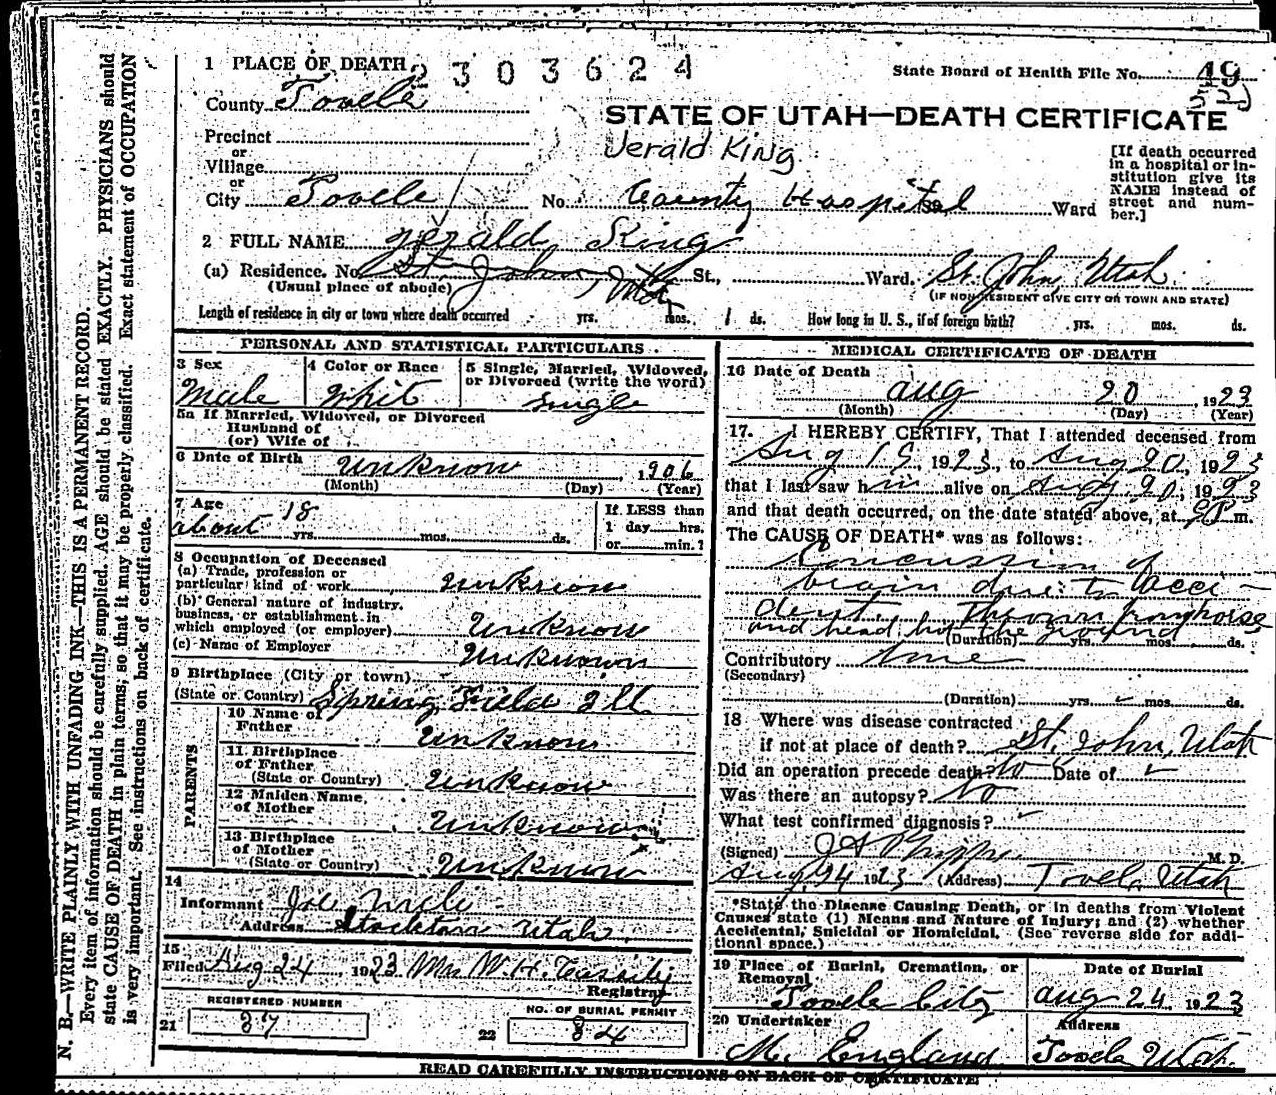 1 PLACE OF DEATH
2303624
State Board of Health File No. 49
County Tooele
STATE OF UTAH—DEATH CERTIFICATE
Precinct
Jerald King
or
Village
or
City Tooele No. County Hospital St. Ward
[If death occurred
in a hospital or in-
stitution give its
NAME instead of
street and num-
ber.]
2 FULL NAME Jerald King
(a) Residence. No. St. John, St., Ward. St. John, Utah.
(Usual place of abode) (IF NON-RESIDENT GIVE CITY OR TOWN AND STATE)
Length of residence in city or town where death occurred yrs. mos. 1 ds. How long in U. S., if of foreign birth? yrs. mos. ds.
PERSONAL AND STATISTICAL PARTICULARS
3 Sex
Male
4 Color or Race
Whit
5 Single, Married, Widowed,
or Divorced (write the word)
Single
5a If Married, Widowed, or Divorced
Husband of
(or) Wife of
6 Date of Birth
Unknow , 1906
(Month) (Day) (Year)
7 Age
about 18 yrs. mos. ds.
If LESS than
1 day hrs.
or min.?
8 Occupation of Deceased
(a) Trade, profession or
particular kind of work Unknow
(b) General nature of industry,
business, or establishment in
which employed (or employer) Unknow
(c) Name of Employer Unknown
9 Birthplace (City or town)
(State or Country) Spring Field Ill
PARENTS
10 Name of
Father Unknow
11 Birthplace
of Father
(State or Country) Unknow
12 Maiden Name
of Mother Unknow
13 Birthplace
of Mother
(State or Country) Unknow
14
Informant Joe
Address Stockton Utah.
15
Filed Aug 24, 1923 Mrs W. H. Cassity
Registrar
REGISTERED NUMBER
21 37
NO. OF BURIAL PERMIT
22 84
MEDICAL CERTIFICATE OF DEATH
16 Date of Death
Aug 20, 1923
(Month) (Day) (Year)
17. I HEREBY CERTIFY, That I attended deceased from
Aug 19, 1923, to Aug 20, 1923
that I last saw him alive on Aug 20, 1923
and that death occurred, on the date stated above, at P m.
The CAUSE OF DEATH* was as follows:
Concussion of
brain due to acci-
dent Thrown from horse
and head hit the ground
(Duration) yrs. mos. ds.
Contributory None
(Secondary)
(Duration) yrs. mos. ds.
18 Where was disease contracted
if not at place of death? St. John, Utah
Did an operation precede death? No Date of
Was there an autopsy? No
What test confirmed diagnosis?
(Signed) J A Phipps M. D.
Aug 24 1923 (Address) Tooele, Utah
*State the Disease Causing Death, or in deaths from Violent
Causes state (1) Means and Nature of Injury; and (2) whether
Accidental, Suicidal or Homicidal. (See reverse side for addi-
tional space.)
19 Place of Burial, Cremation, or
Removal
Tooele City
Date of Burial
Aug 24 1923
20 Undertaker
M. England
Address
Tooele Utah.
READ CAREFULLY INSTRUCTIONS ON BACK OF CERTIFICATE
N. B.—WRITE PLAINLY WITH UNFADING INK—THIS IS A PERMANENT RECORD.
Every item of information should be carefully supplied. AGE should be stated EXACTLY. PHYSICIANS should
state CAUSE OF DEATH in plain terms, so that it may be properly classified. Exact statement of OCCUPATION
is very important. See instructions on back of certificate.